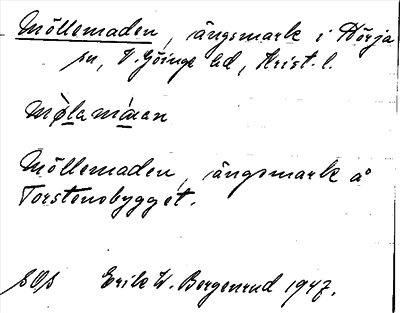 Möllemaden, ängsmark i Hörja
sn, V. Göinge hd, Krist. l.
Mø̀la máan
Möllemaden, ängsmark å
Torstensbygget.
sOs Erik W. Bergenrud 1947.